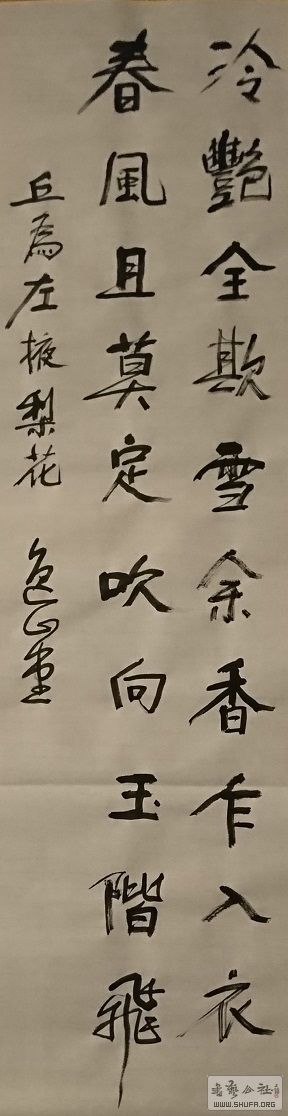 冷豔全欺雪余香乍入衣
春風且莫定吹向玉階飛
丘為左掖梨花
WWW.SHUFA.ORG